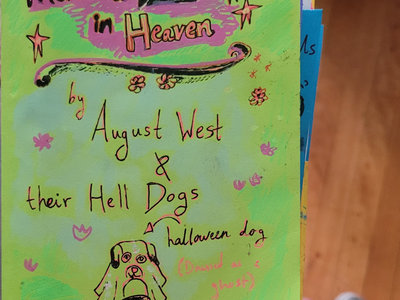 in Heaven
by
August West
&
their Hell Dogs
halloween dog
ghost)